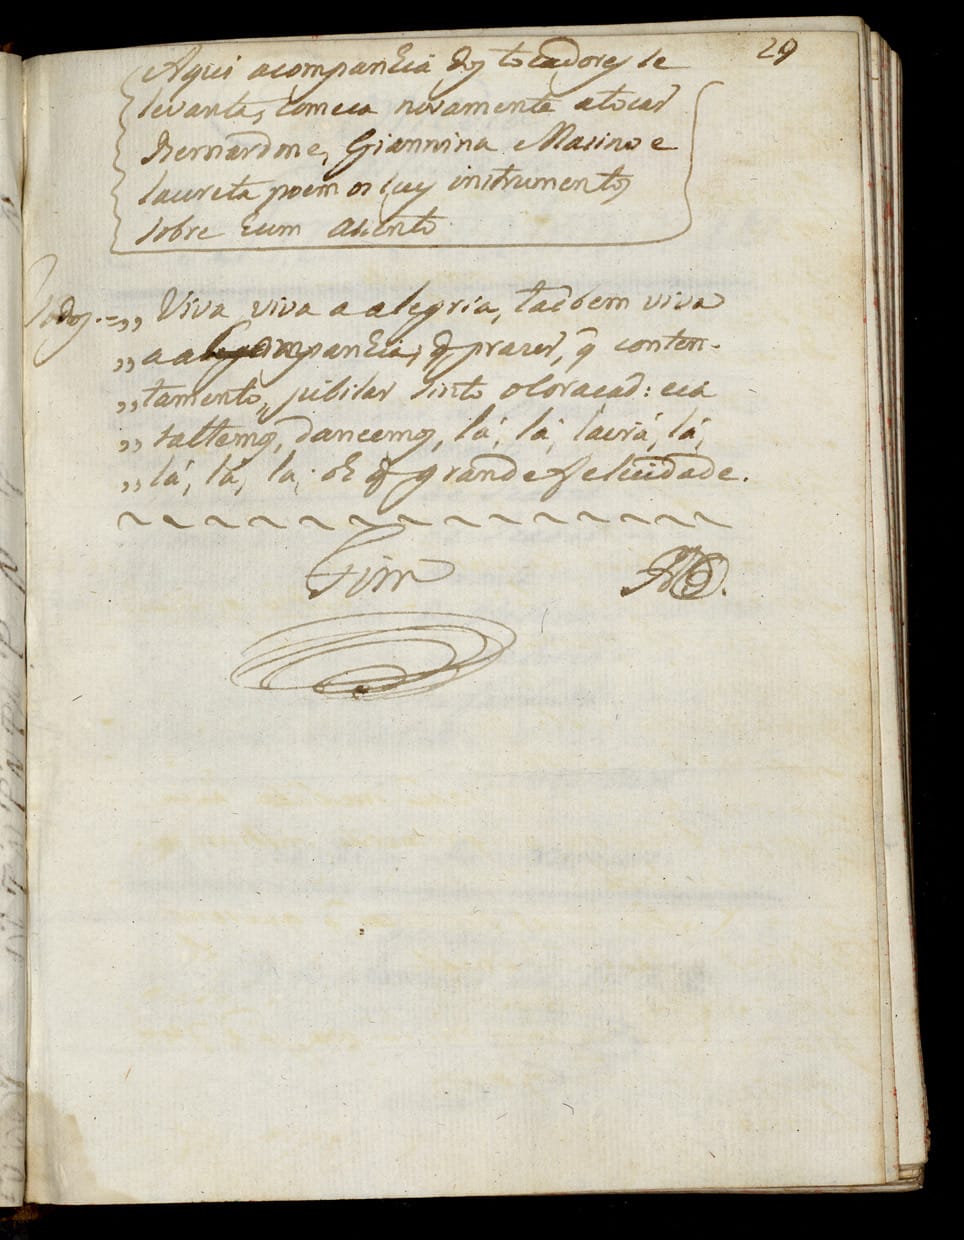 29
Aqui acompanhia dos tocadores se
levanta, comeca novamente atocar
Bernardone, Giannina e Masino e
laureta poem os seus instrumentos
sobre hum asento
Todos. =,, Viva viva a alegria, taobem viva
,, a a companhia, q prazer, q conten-
,, tamento, jubilar sinto o Coracao: eia
,, saltemos, dancemos, lá, lá, lairá, lá,
,, lá, lá, la. oh q grande felicidade.
Fim